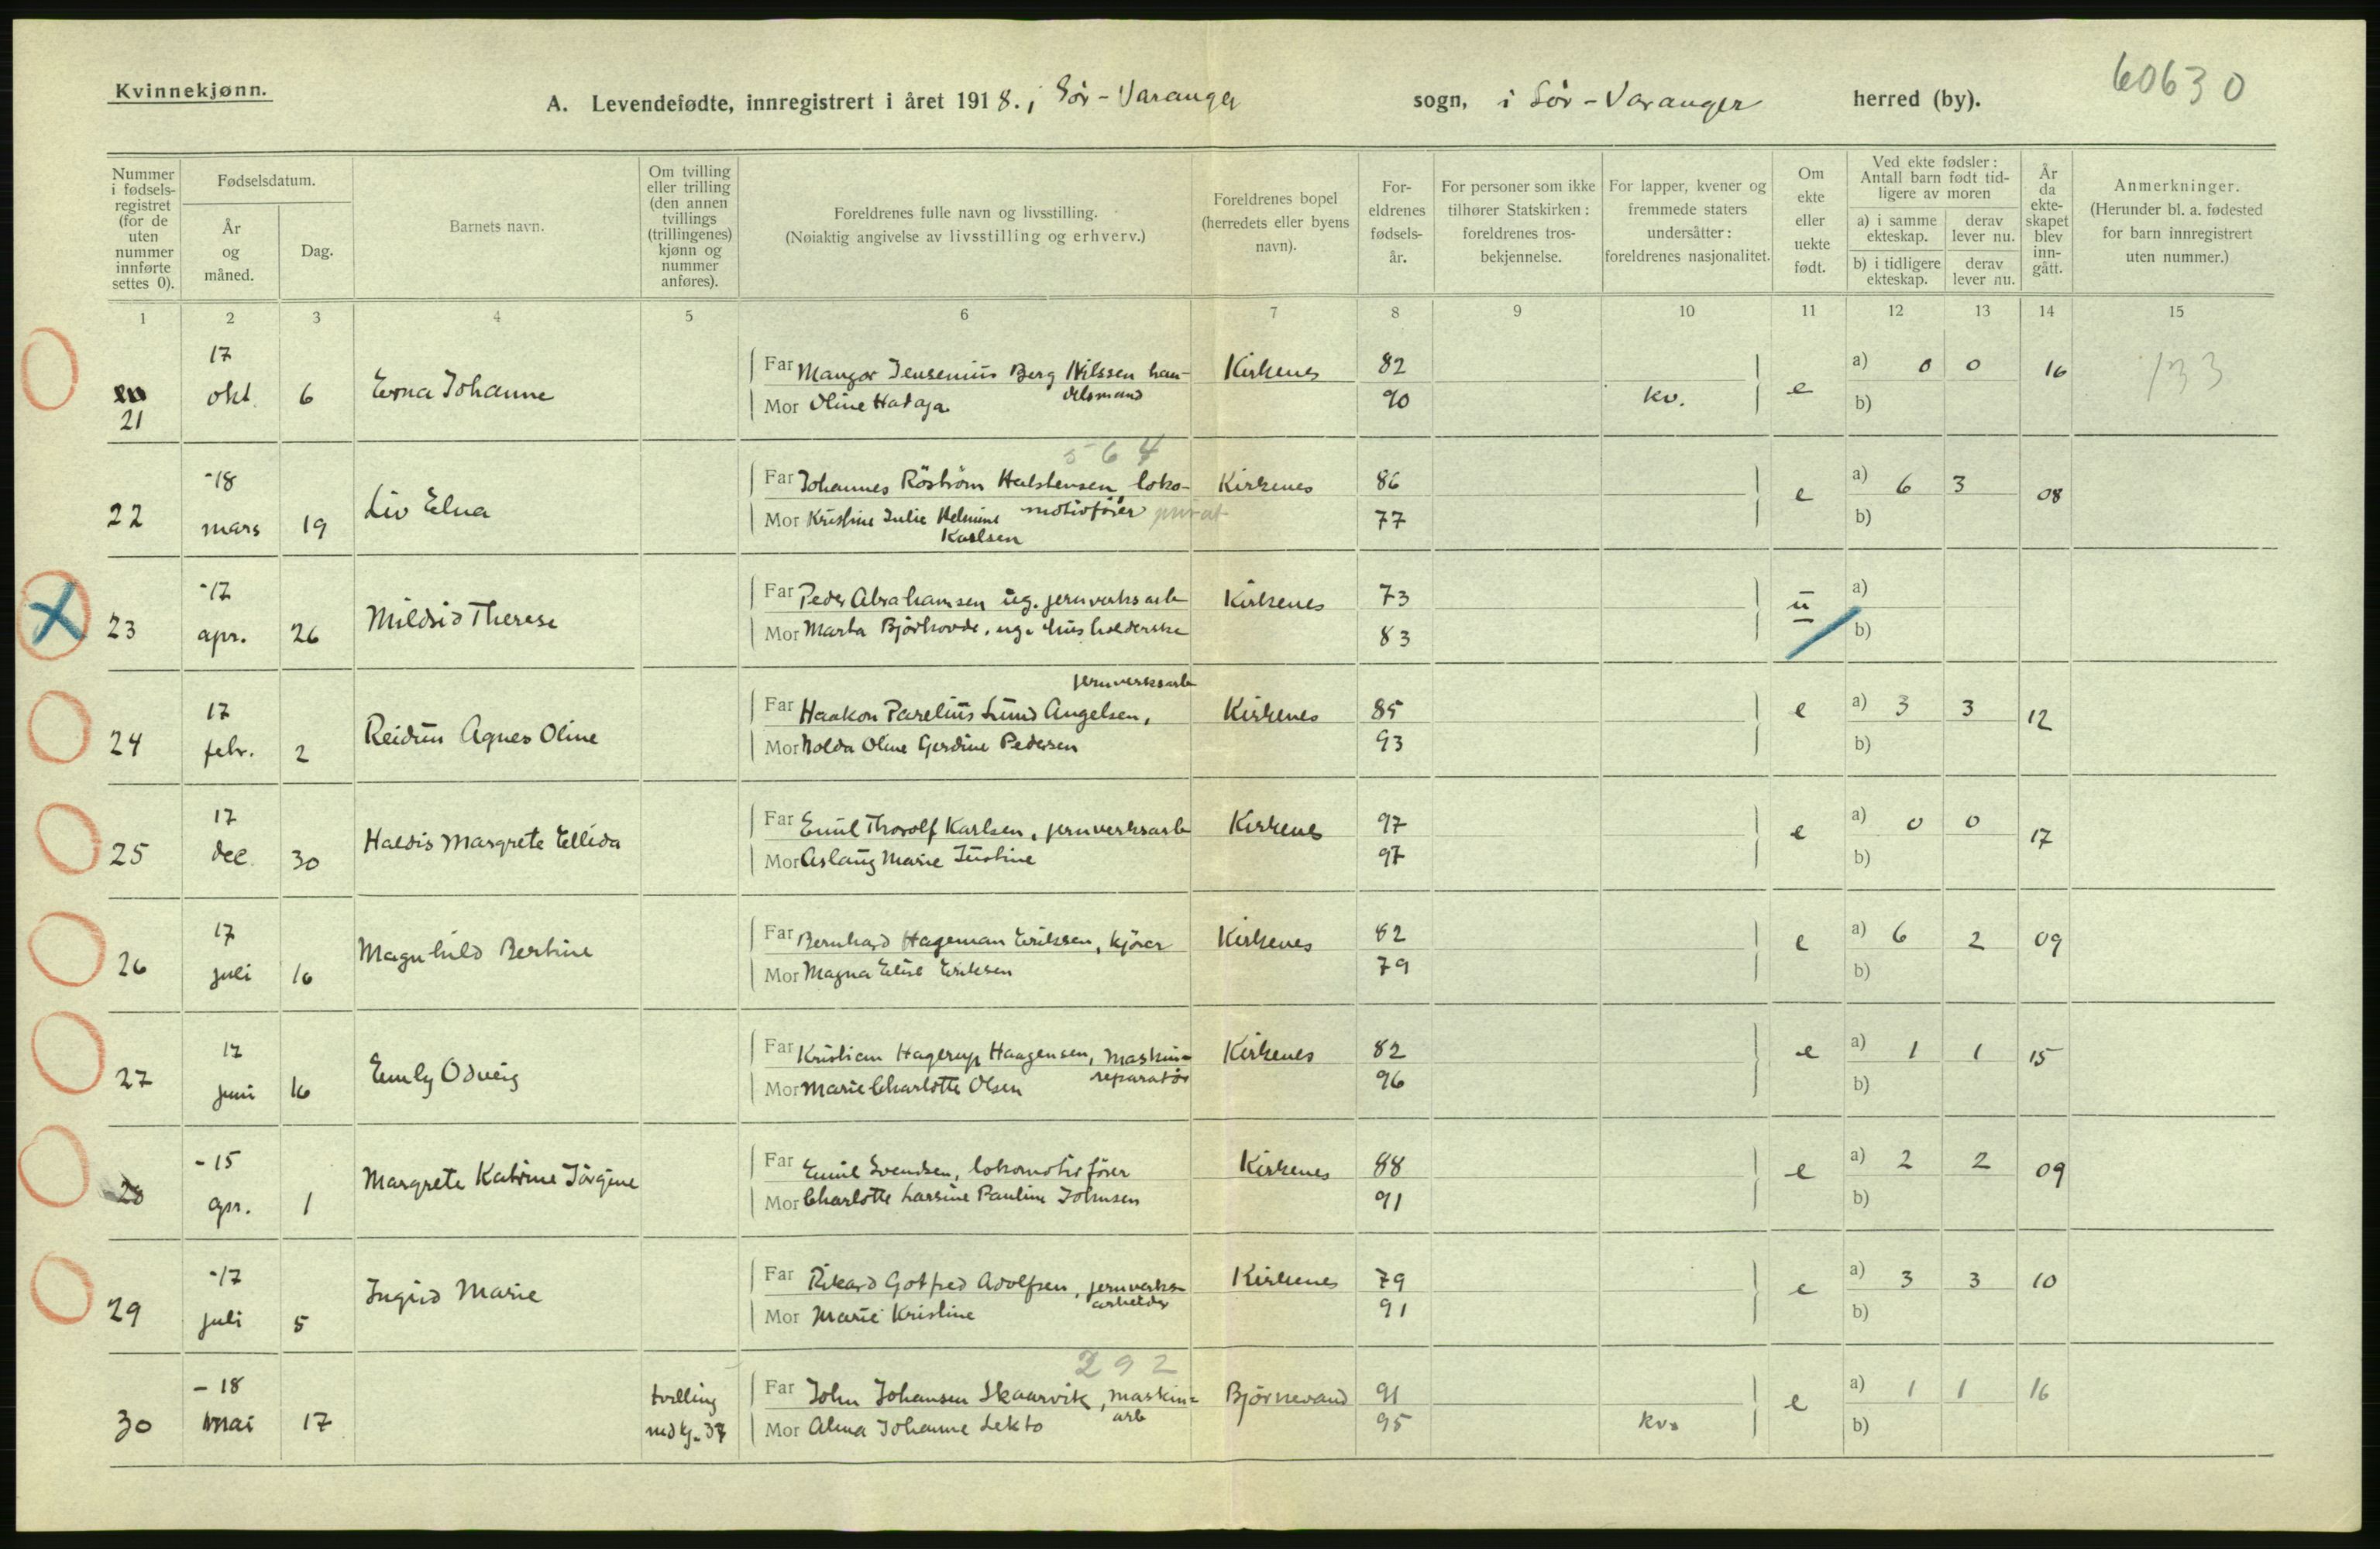 Kvinnekjønn.
A. Levendefødte, innregistrert i året 1918. i Sör-Varanger sogn, i Sör-Varanger herred (by).
60630
Nummer i fødsels-registret (for de uten nummer innførte settes 0).
Fødselsdatum.
År og måned.
Dag.
Barnets navn.
Om tvilling eller trilling (den annen tvillings (trillingenes) kjønn og nummer anføres).
Foreldrenes fulle navn og livsstilling.
(Nøiaktig angivelse av livsstilling og erhverv.)
Foreldrenes bopel (herredets eller byens navn).
For-eldrenes fødsels-år.
For personer som ikke tilhører Statskirken: foreldrenes tros-bekjennelse.
For lapper, kvener og fremmede staters undersåtter: foreldrenes nasjonalitet.
Om ekte eller uekte født.
Ved ekte fødsler: Antall barn født tid-ligere av moren
a) i samme ekteskap.
derav lever nu.
b) i tidligere ekteskap.
derav lever nu.
År da ekte-skapet blev inn-gått.
Anmerkninger.
(Herunder bl. a. fødested for barn innregistrert uten nummer.)
1 2 3 4 5 6 7 8 9 10 11 12 13 14 15
17
Far Mangor Jensenius Berg Nilssen han- Kirkenes 82 a) 0 0 16 133
21 okt. 6 Erna Johanne
delsmand
Mor Oline Hataja 90 kv. e b)
564
-18
Far Johannes Röström Halstensen, loko- Kirkenes 86 a) 6 3 08
22 mars 19 Liv Elna
motivfører privat
Mor Kristine Julie Helmine 77 e b)
Karlsen
-17
Far Peder Abrahamsen ug. jernverksarb Kirkenes 73 a)
23 apr. 26 Mildrid Therese
Mor Marta Björhovde, ug. husholderske 83 u b)
jernverksarb
17
Far Haakon Parelius Lund Angelsen, Kirkenes 85 e a) 3 3 12
24 febr. 2 Reidun Agnes Oline
Mor Nolda Oline Gerdine Pedersen 93 b)
17
Far Emil Thorolf Karlsen, jernverksarb Kirkenes 97 e a) 0 0 17
25 dec. 30 Haldis Margrete Ellida
Mor Aslaug Marie Justine 97 b)
17
Far Bernhard Hageman Eriksen, kjörer Kirkenes 82 e a) 6 2 09
26 juli 16 Magnhild Bertine
Mor Magna Elise Eriksen 79 b)
17
Far Kristian Hagerup Haagensen, maskin= Kirkenes 82 e a) 1 1 15
27 juni 16 Emly Odveig
reparatör
Mor Marie Charlotte Olsen 96 b)
-15
Far Emil Svendsen, lokomotivförer Kirkenes 88 e a) 2 2 09
28 apr. 1 Margrete Katrine Jörgine
Mor Charlotte Larsine Pauline Johnsen 91 b)
-17
Far Rikard Gotfred Adolfsen, jernverks= Kirkenes 79 e a) 3 3 10
29 juli 5 Ingrid Marie
arbeider
Mor Marie Kristine 91 b)
292
-18
tvilling
Far John Johansen Skaarvik, maskin= Björnevand 91 e a) 1 1 16
30 mai 17
arb
med kj. 37
Mor Alma Johanne Lekto 95 kv. b)